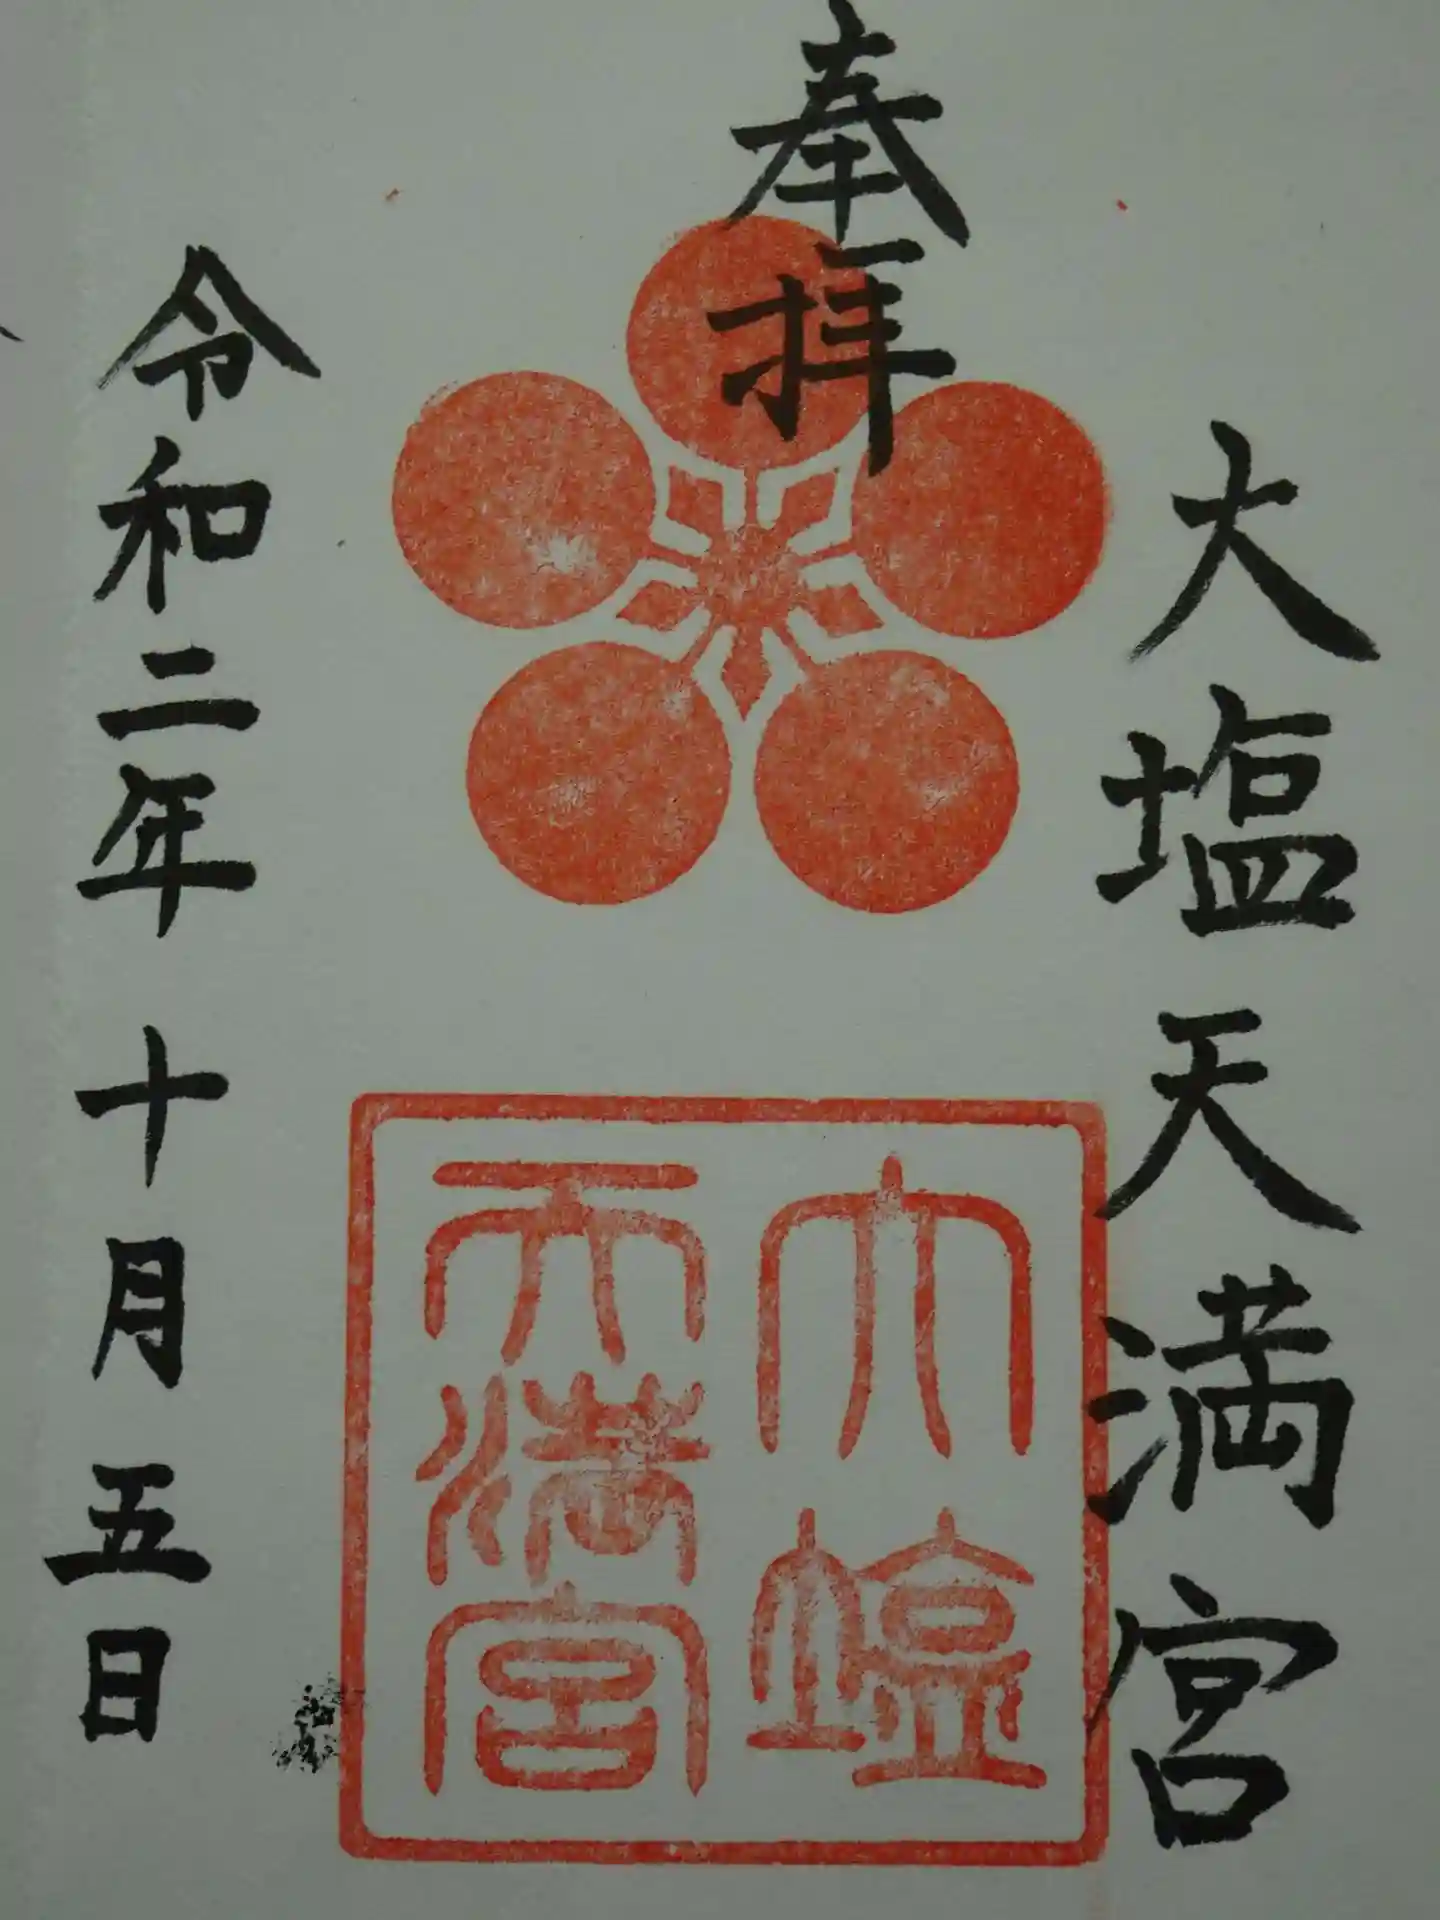 奉拝
大塩天満宮
大塩
天満宮
令和二年十月五日